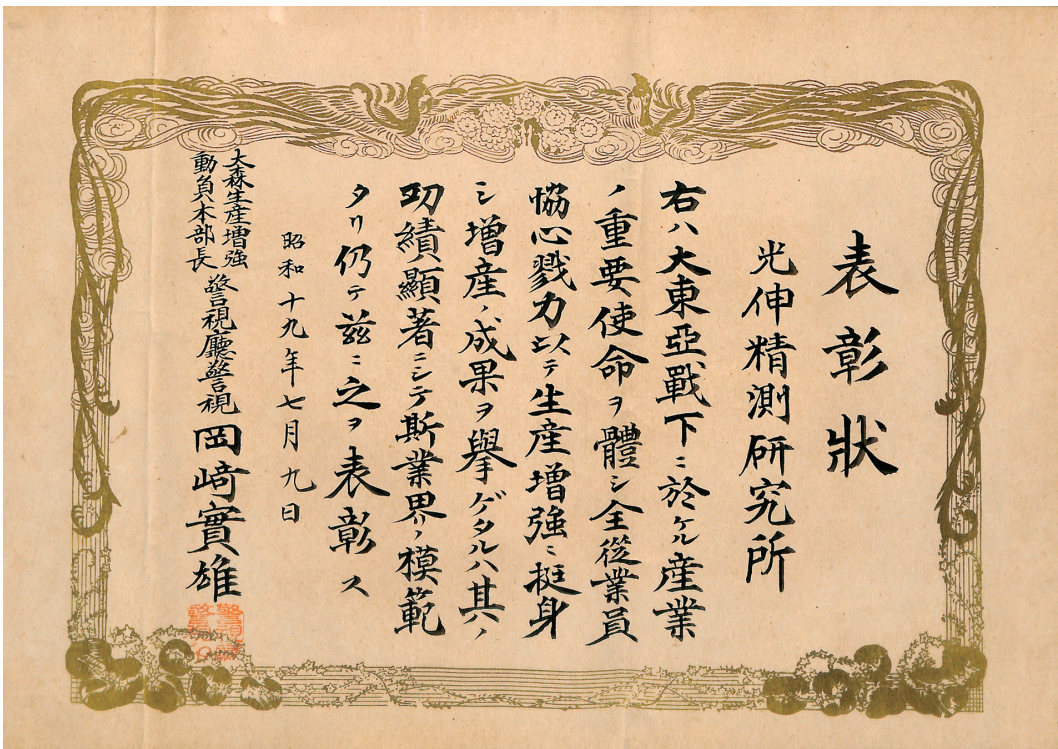 表彰狀
光伸精測研究所
右ハ大東亞戰下ニ於ケル産業
ノ重要使命ヲ體シ全從業員
恊心戮力以テ生産増強ニ挺身
シ増産ノ成果ヲ擧ゲタルハ其ノ
功績顯著ニシテ斯業界ノ模範
タリ仍テ茲ニ之ヲ表彰ス
昭和十九年七月九日
大森生産増強
動員本部長
警視廳警視 岡﨑實雄